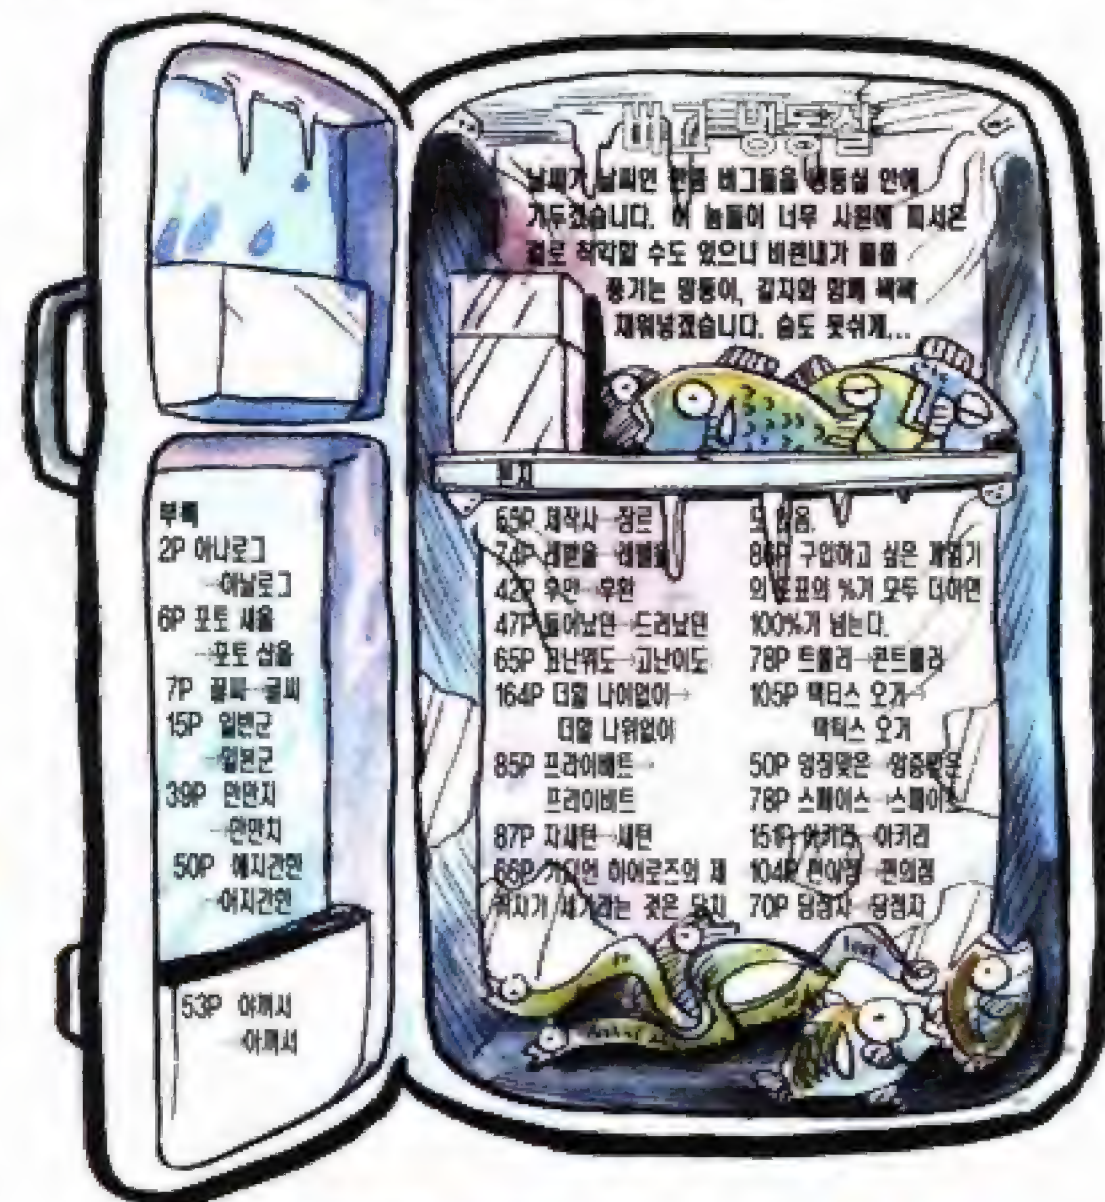 버그 냉동실
날씨가 날씨인 만큼 버그들을 냉동실 안에
가두겠습니다. 이 놈들이 너무 시원해 피서온
걸로 착각할 수도 있으나 비린내가 풀풀
풍기는 망둥이, 갈치와 함께 빡빡
채워넣겠습니다. 숨도 못쉬게...
부록
2P 아나로그
→아날로그
6P 포토 새을
→포토 샵을
7P 끌씨→글씨
15P 일반군
→일본군
39P 만만지
→만만치
50P 에지간한
→어지간한
53P 야께서
→아께서
본지
65P 제작사→장르
74P 레반울→레벨울
42P 우안→우완
47P 들어났던→드러났던
65P 고난위도→고난이도
164P 더할 나이없이→
더할 나위없이
85P 프라이배트→
프라이비트
87P 자새턴→새턴
66P 가디언 히어로즈의 제
작사가 세가라는 것은 당치
도 않음.
86P 구입하고 싶은 게임기
의 도표의 %가 모두 더하면
100%가 넘는다.
78P 트롤러→콘트롤러
105P 택티스 오거→
택틱스 오거
50P 앙징맞은→앙증맞은
78P 스페이스→스페이스
151P 아키라→아키라
104P 편이점→편의점
70P 당점자→당첨자